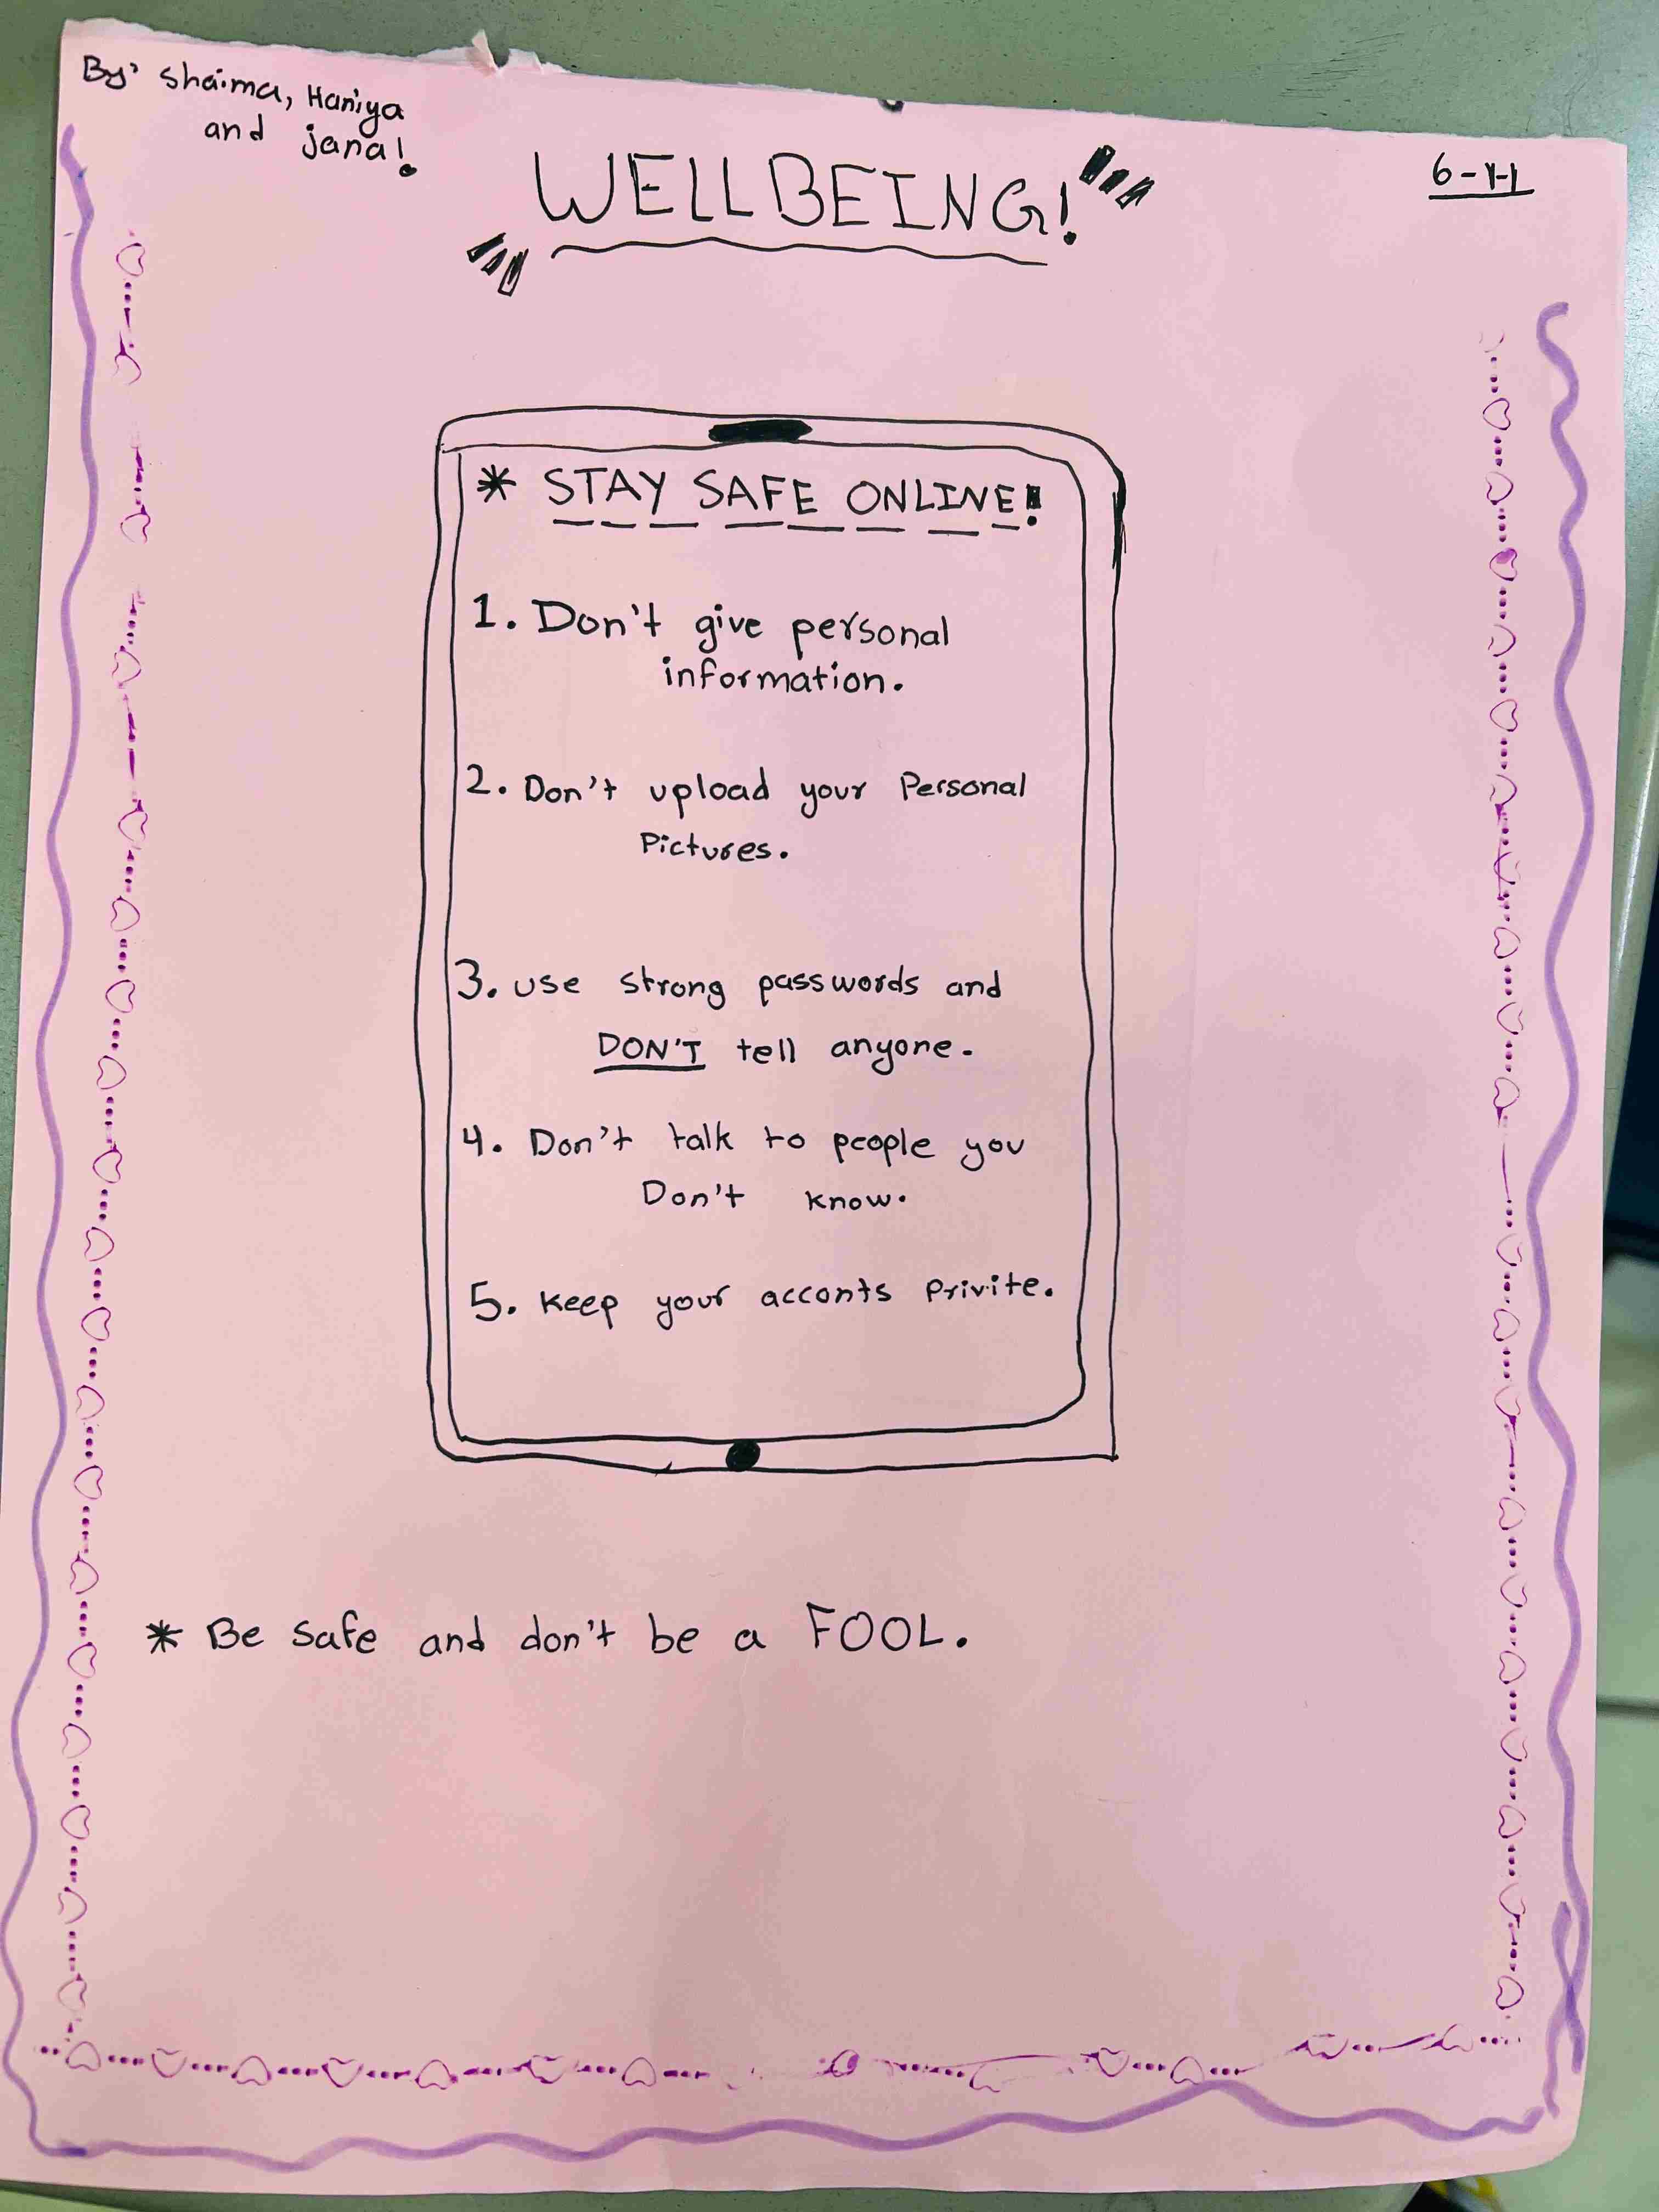 By: Shaima, Haniya
and jana!
WELLBEING!
6-11
* STAY SAFE ONLINE!
1. Don't give personal
information.
2. Don't upload your Personal
Pictures.
3. use strong passwords and
DON'T tell anyone.
4. Don't talk to people you
Don't know.
5. Keep your acconts Privite.
* Be safe and don't be a FOOL.